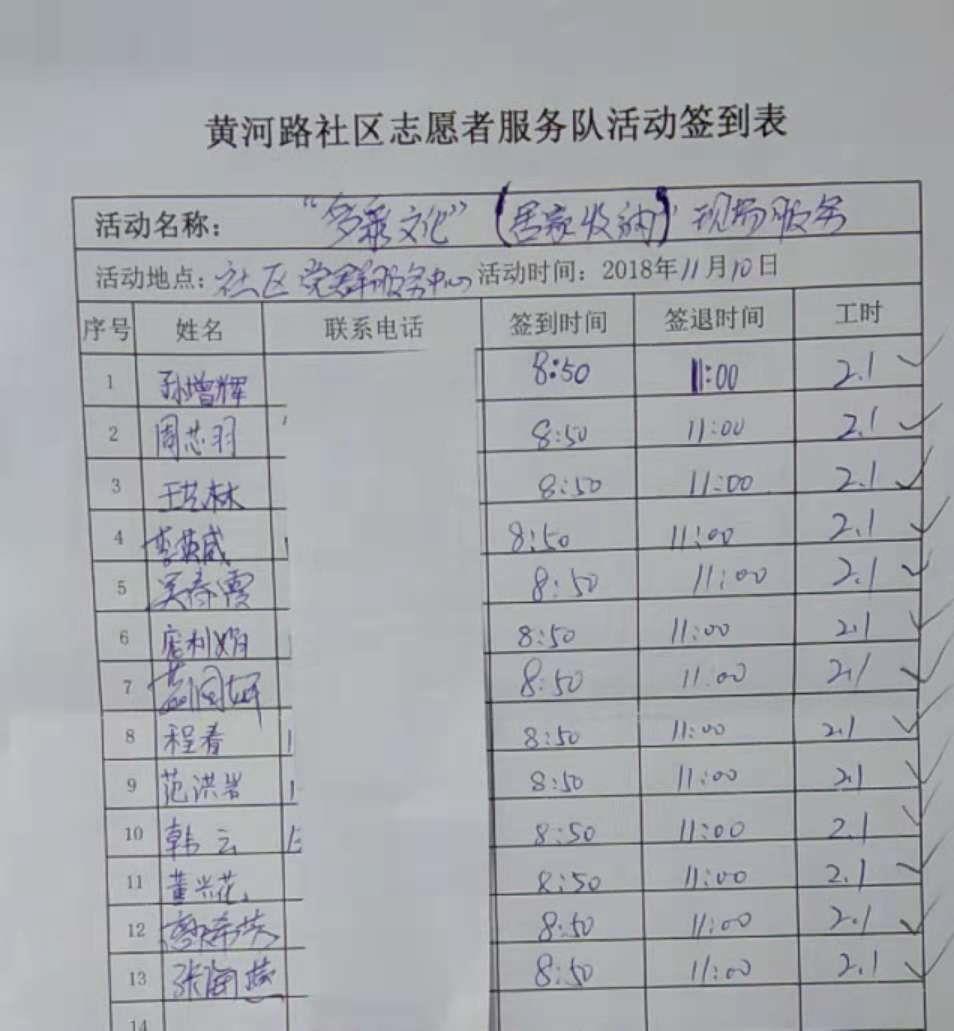 黄河路社区志愿者服务队活动签到表
活动名称： “多彩文化”（居家收纳）现场服务
活动地点：社区党群服务中心 活动时间：2018年11月10日
序号 姓名 联系电话 签到时间 签退时间 工时
1 孙增辉 8:50 11:00 2.1
2 周芯羽 8:50 11:00 2.1
3 王艺林 8:50 11:00 2.1
4 李英威 8:50 11:00 2.1
5 吴春霞 8:50 11:00 2.1
6 庞利娟 8:50 11:00 2.1
7 8:50 11:00 2.1
8 程春 8:50 11:00 2.1
9 范洪岩 8:50 11:00 2.1
10 韩云 8:50 11:00 2.1
11 董兴花 8:50 11:00 2.1
12 8:50 11:00 2.1
13 张海燕 8:50 11:00 2.1
14